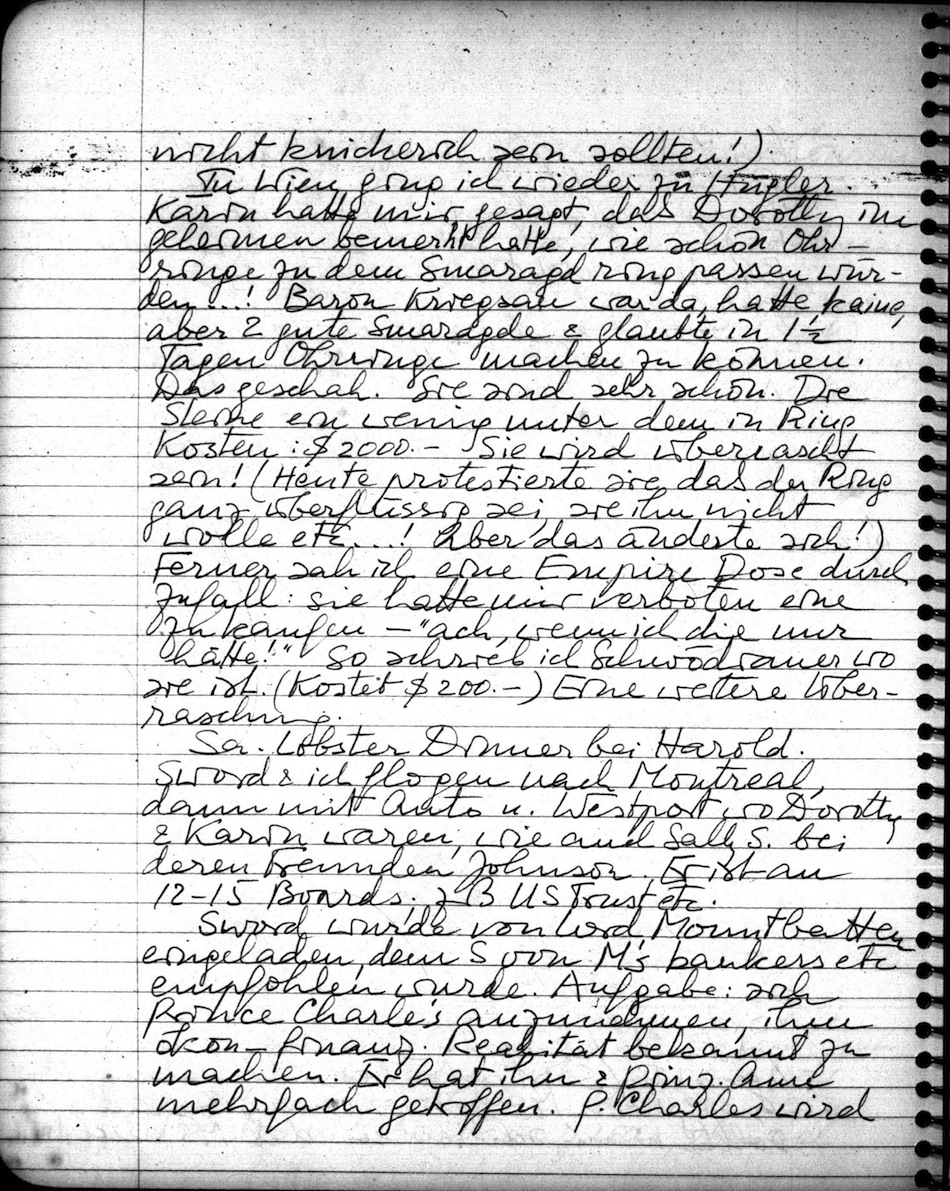 nicht knickerich sein sollten!)
In Wien ging ich wieder zu Hügler.
Karin hatte mir gesagt, das Dorothy im
geheimen bemerkt hatte, wie schön Ohr-
ringe zu dem Smaragdring passen wür-
den...! Baron Kriegsau war da, hatte keine,
aber 2 gute Smaragde & glaubte in 1½
Tagen Ohrringe machen zu können.
Das geschah. Sie sind sehr schön. Die
Steine ein wenig unter dem in Ring
Kosten: $2000.- Sie wird überrascht
sein! (Heute protestierte sie, das der Ring
ganz überflüssig sei, sie ihn nicht
wolle etc...! Aber das änderte sich!)
Ferner sah ich eine Empire Dose durch
Zufall: sie hatte mir verboten eine
zu kaufen — "ach, wenn ich die nur
hätte!" So schrieb ich Schwödiauer wo
sie ist. (Kostet $200.-) Eine weitere Über-
raschung.
Sa. Lobster Dinner bei Harold.
Sword & ich flogen nach Montreal,
dann mit Auto n. Westport wo Dorothy
& Karin waren, wie auch Sally S. bei
deren Freunden Johnson. Er ist an
12-15 Boards. z B US Trust etc.
Sword wurde von Lord Mountbatten
eingeladen, dem S von M's bankers etc
empfohlen wurde. Aufgabe: sich
Prince Charles anzunehmen, ihm
ökon-finanz. Realität bekannt zu
machen. Er hat ihn & Prinz. Anne
mehrfach getroffen. P. Charles wird